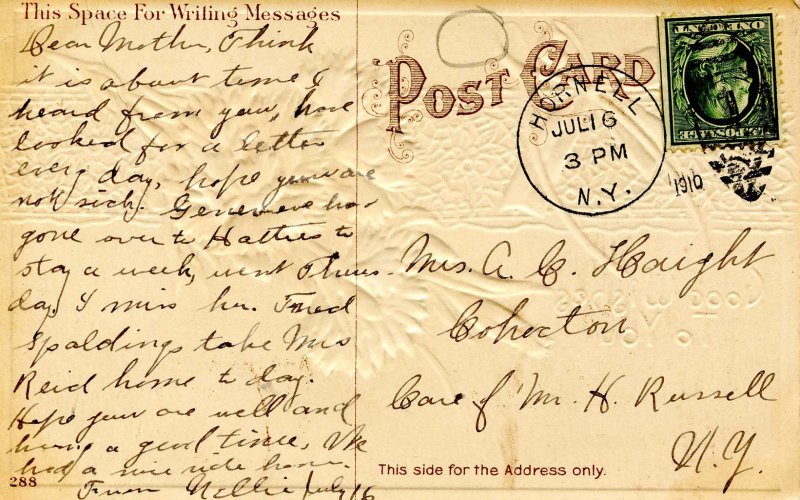 This Space For Writing Messages
Dear Mother, Think
it is about time I
heard from you, have
looked for a letter
every day, hope you are
not sick. Genevieve has
gone over to Hatties to
stay a week, went Thurs-
day. I miss her. Fred
Spaldings take Mrs
Reid home to day.
Hope you are well and
having a good time, We
had a nice ride home.
From Nellie July 16
288
POST CARD
HORNELL
JUL 16
3 PM
N.Y.
1910
ONE CENT
U.S. POSTAGE
Mrs. A. C. Haight
Cohocton
Care of Mr. H. Russell
N.Y.
Good Wishes
To You
This side for the Address only.